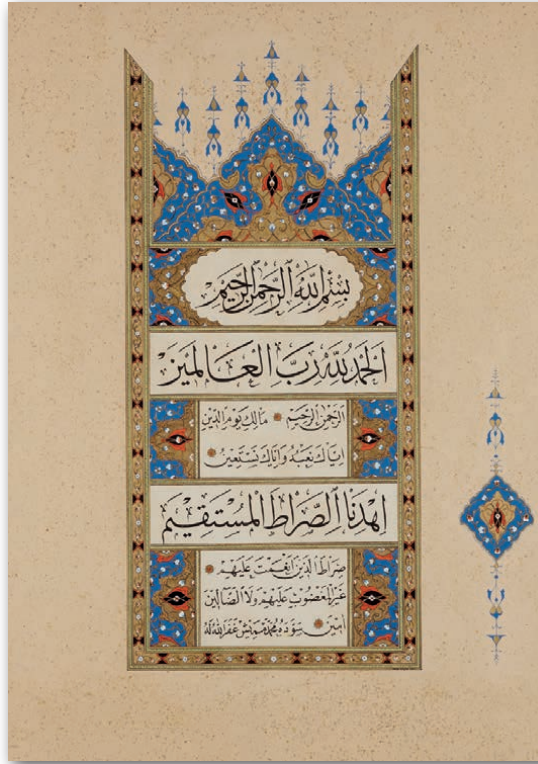 بِسْمِ اللّٰهِ الرَّحْمٰنِ الرَّحِيْمِ
اَلْحَمْدُ لِلّٰهِ رَبِّ الْعَالَمِيْنَ
اَلرَّحْمٰنِ الرَّحِيْمِ مَالِكِ يَوْمِ الدِّيْنِ
اِيَّاكَ نَعْبُدُ وَاِيَّاكَ نَسْتَعِيْنُ
اِهْدِنَا الصِّرَاطَ الْمُسْتَقِيْمَ
صِرَاطَ الَّذِيْنَ اَنْعَمْتَ عَلَيْهِمْ
غَيْرِ الْمَغْضُوْبِ عَلَيْهِمْ وَلَا الضَّالِّيْنَ
اٰمِيْنَ سَوَّدَهُ مُحَمَّد غَفَرَ اللّٰهُ لَهُ